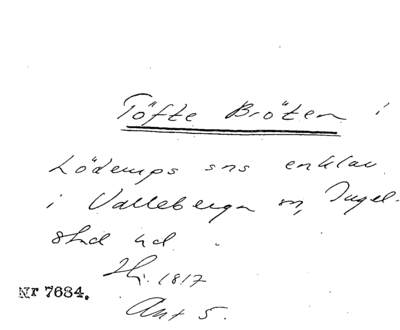 Töfte Bröten i
Löderups sns enklav
i Valleberga sn, Ingel-
stad hd.
Hj. 1817
Ant 5.
Nr 7684.